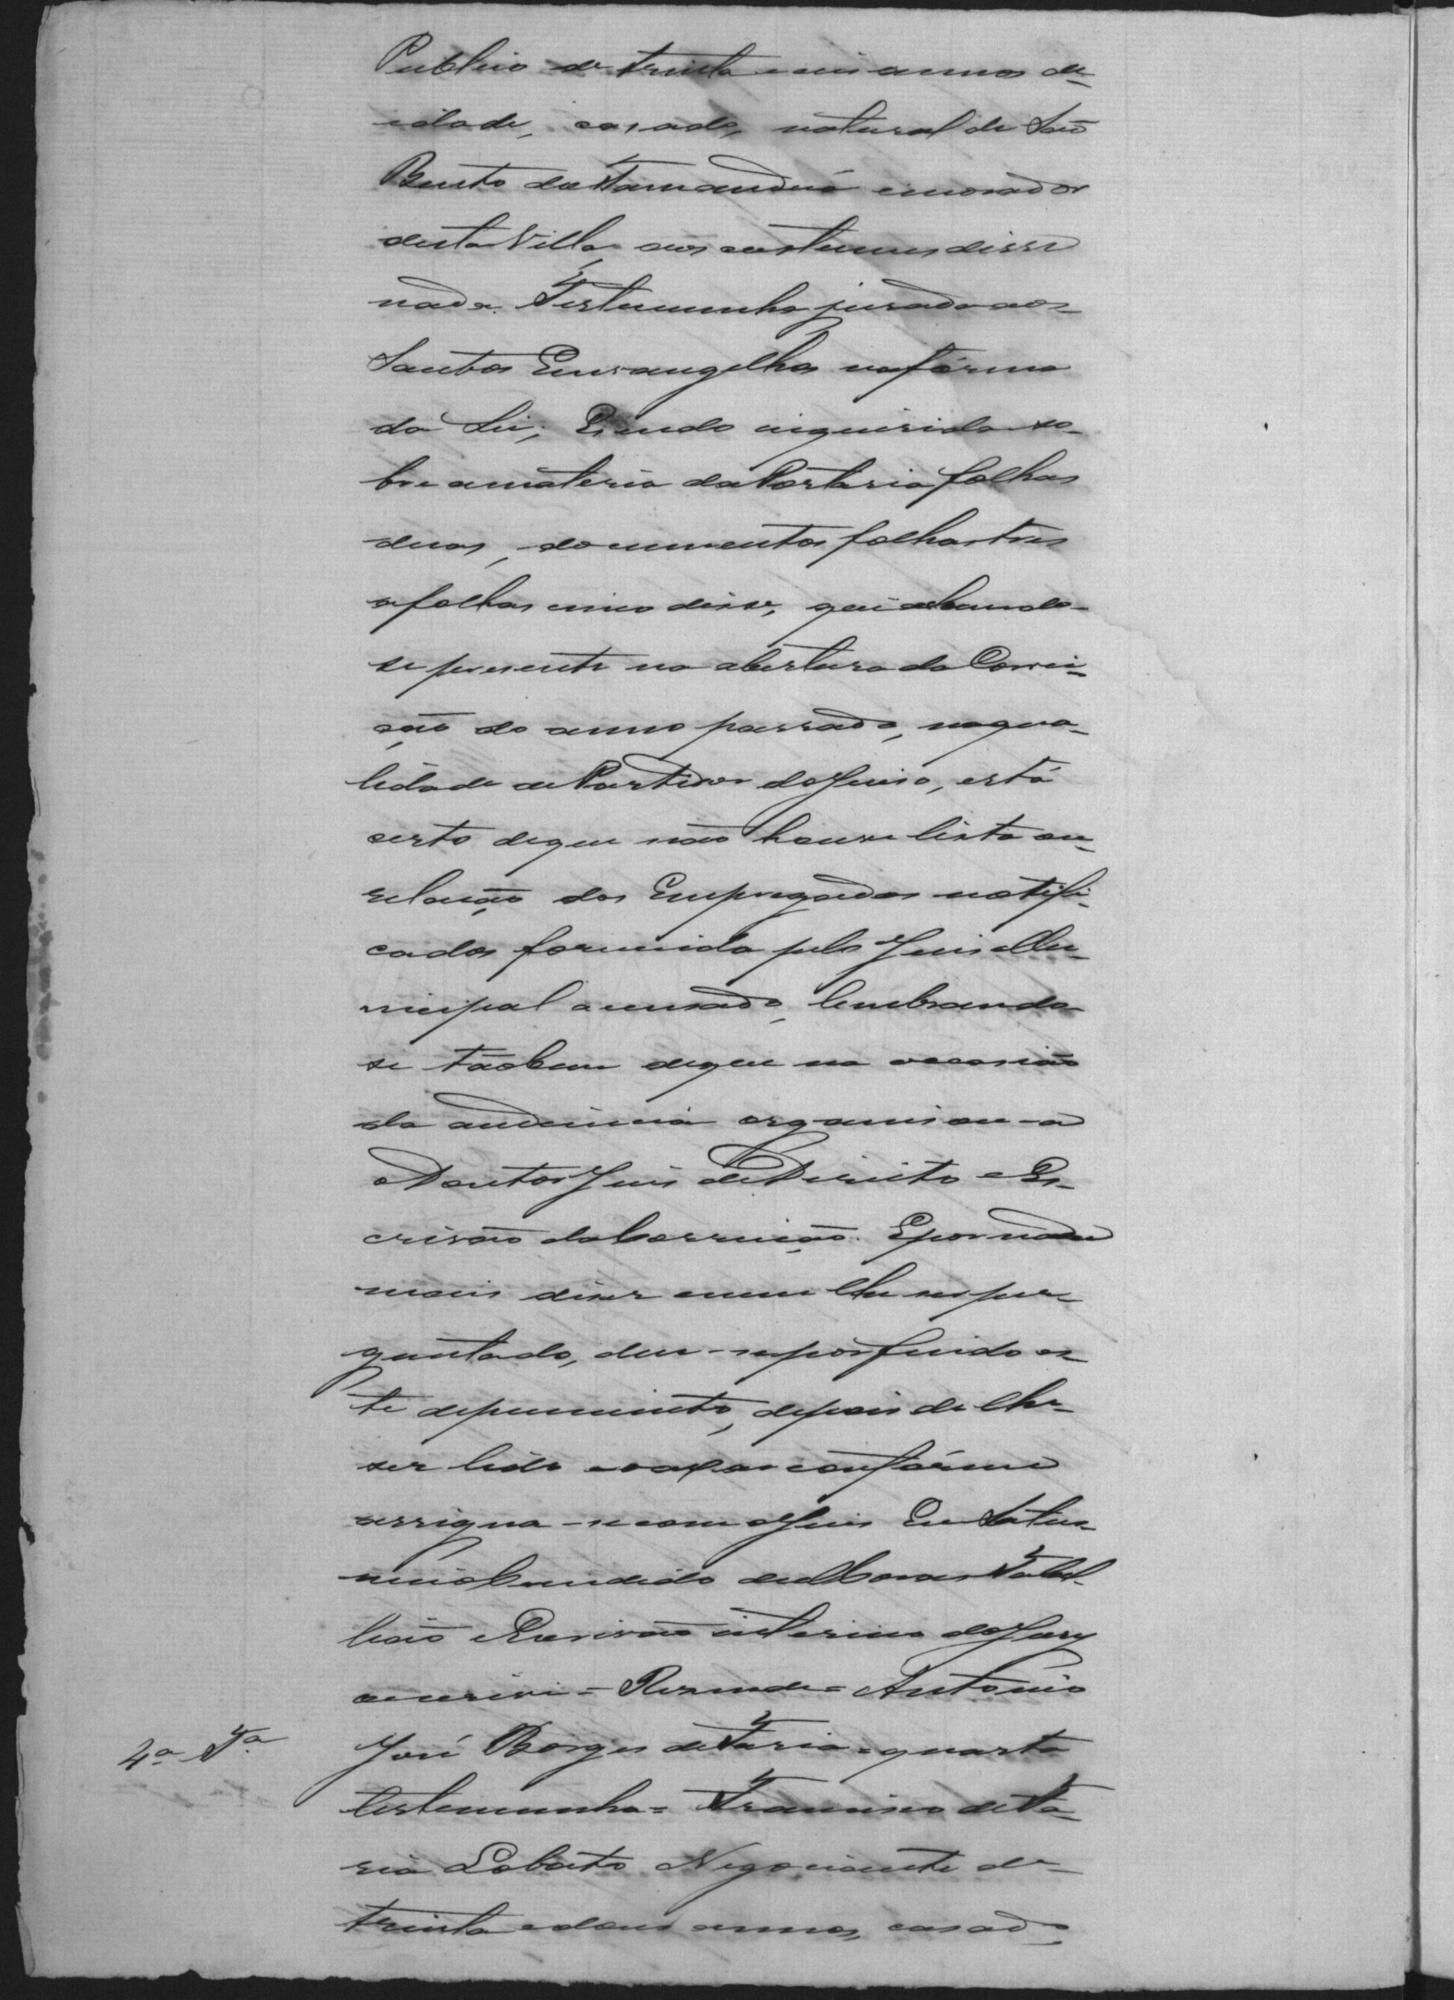 Publico de trinta e seis annos de
idade, casado, natural de São
Bento do Tamanduá e morador
desta Villa, aos costumes disse
nada. Testemunha jurada aos
Santos Envangelhos na fórma
da Lei; E sendo inquirida so-
bre a materia da Portaria folhas
duas, documentos folhas tres
a folhas cinco disse, que achando-
se presente na abertura da Correi-
ção do anno passado, na qua-
lidade de Partidor do Juiso, está
certo de que não houve lista ou
relação dos Empregados notifi-
cados fornecida pelo Juis Mu-
nicipal accusado, lembrando
se tãobem de que na occasião
da audiencia organisou-a
o Doutor Juis de Direito e Es-
crivão da Correição. E por nada
mais diser e nem lhe ser per-
guntado, deu-se por findo es-
te depoimento, depois de lhe
ser lido e o achar conforme
assigna-se com o Juis Eu Satur-
nino Candido de Moraes Tabel-
lião e Escrivão interino do Jury
o escrevi = Resende = Antonio
4ª Tª José Borges de Faria = quarta
testemunha = Francisco de Fa-
ria Lobato Negociante de
trinta e dous annos, casado,